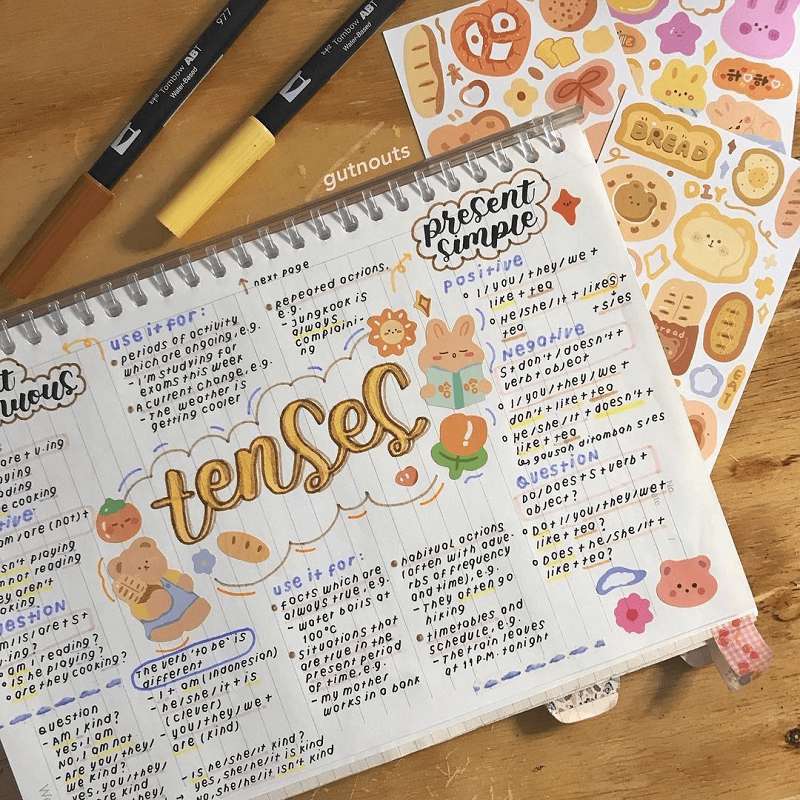 977
Tombow ABT
Water-Based
Tombow ABT
Water-Based
gutnouts
BREAD
DIY
EAT
next page
use it for:
• periods of activity
which are ongoing, e.g.
- I'm studying for
exams this week
• a current change, e.g.
- The weather is
getting cooler
• repeated actions,
e.g.
- Jungkook is
always
complaini-
ng
tenses
present
simple
positive
• I/you/they/we +
like + tea
• He/she/it + likes +
tea
+ s/es
Negative
S + don't / doesn't +
verb + object
• I/you/they/we +
don't + like + tea
• He/she/it + doesn't +
like + tea
↳ gausah ditambah s/es
Question
Do/Does + S + verb +
object?
• Do + I/you/they/we +
like + tea?
• Does + he/she/it +
like + tea?
use it for:
• facts which are
always true, e.g.
- water boils at
100°C
• situations that
are true in the
present period
of time, e.g.
- my mother
works in a bank
• habitual actions
(often with adve-
rbs of frequency
and time), e.g.
- They often go
hiking
• timetables and
schedule, e.g.
- The train leaves
at 11 P.M. tonight
uous
are + v.ing
ading
cooking
am/are (not) +
isn't playing
not reading
they aren't
cooking
Question
am/is/are + S +
v.ing?
• am I reading?
• is he playing?
• are they cooking?
The verb 'to be' is
different
- I + am (Indonesian)
- he/she/it + is
(clever)
- you/they/we +
are (kind)
Question
- Am I kind?
Yes, I am
No, I am not
- Are you/they/
we kind?
yes, you/they/
are kind
- Is he/she/it kind?
yes, she/he/it is kind
→ No, she/he/it isn't kind